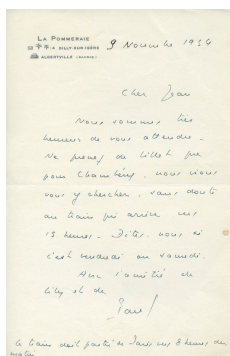 LA POMMERAIE
À GILLY-SUR-ISÈRE
ALBERTVILLE (SAVOIE)
9 Novembre 1934
Cher Jean
Nous sommes très
heureux de vous attendre.
Ne prenez de billet que
pour Chambéry. nous irons
vous y chercher. sans doute
au train qui arrive vers
15 heures. Dites-nous si
c'est vendredi ou samedi.
Aux amitiés de
Lilly et de
Paul
le train doit partir de Paris vers 8 heures du
matin